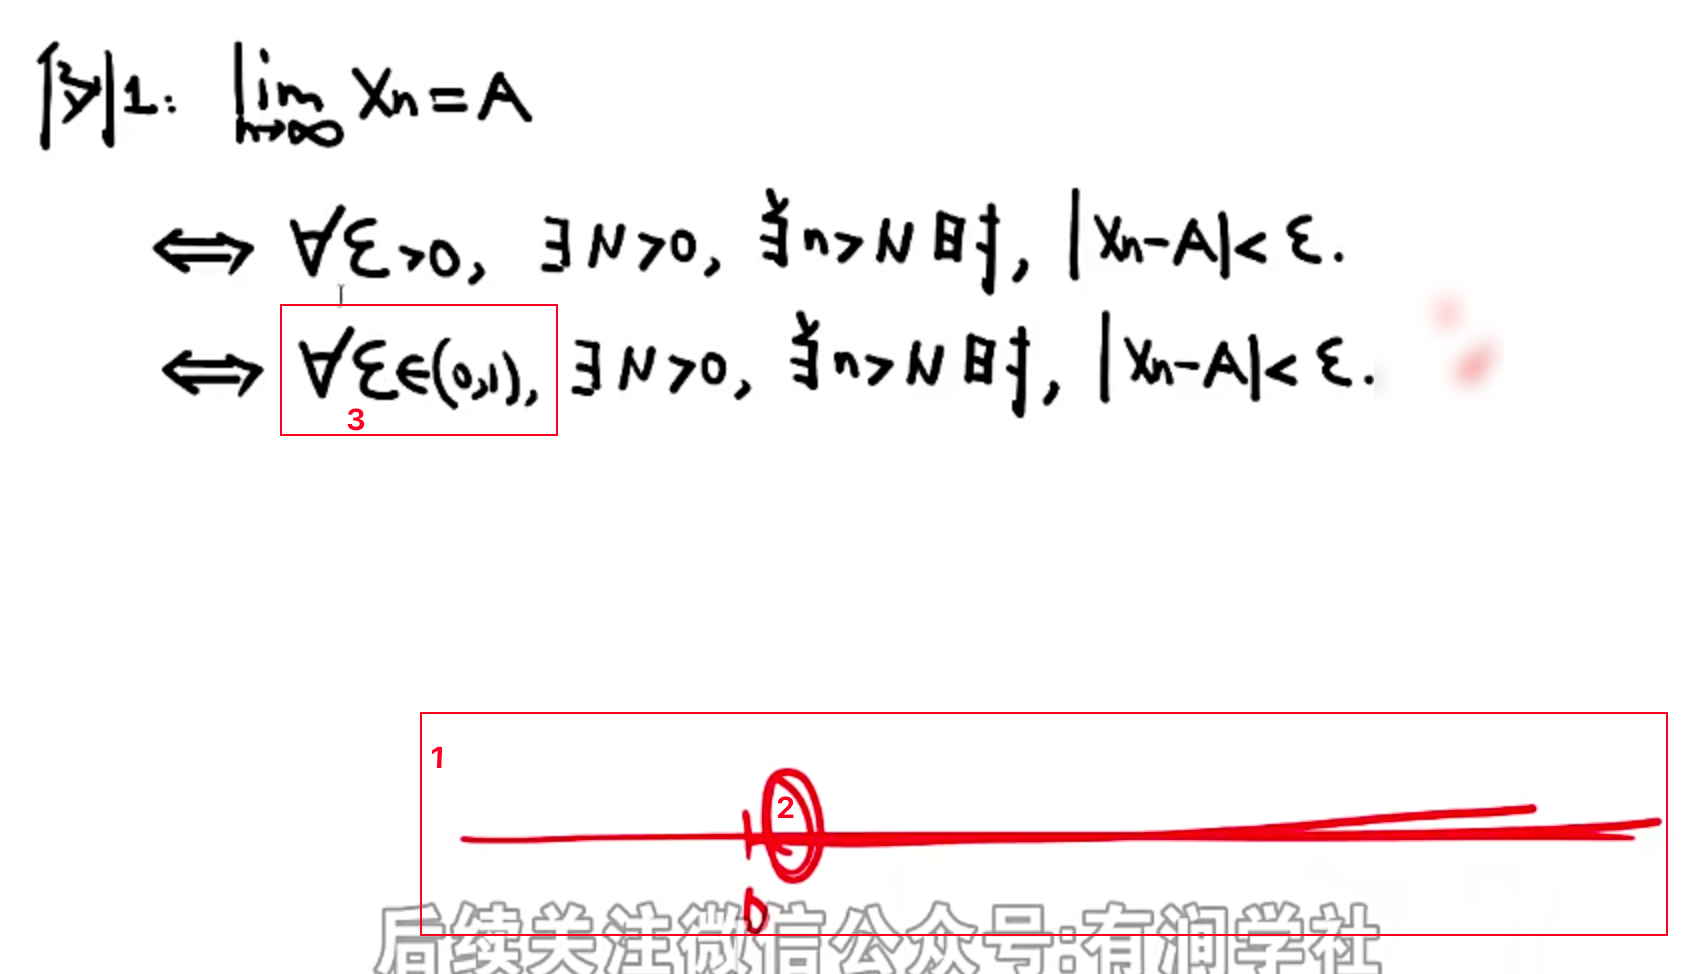 例1: lim Xn = A
n→∞
⟺ ∀ε>0, ∃N>0, 当n>N时, |Xn-A|<ε.
⟺ ∀ε∈(0,1), ∃N>0, 当n>N时, |Xn-A|<ε.
3
1
2
0
后续关注微信公众号:有润学社